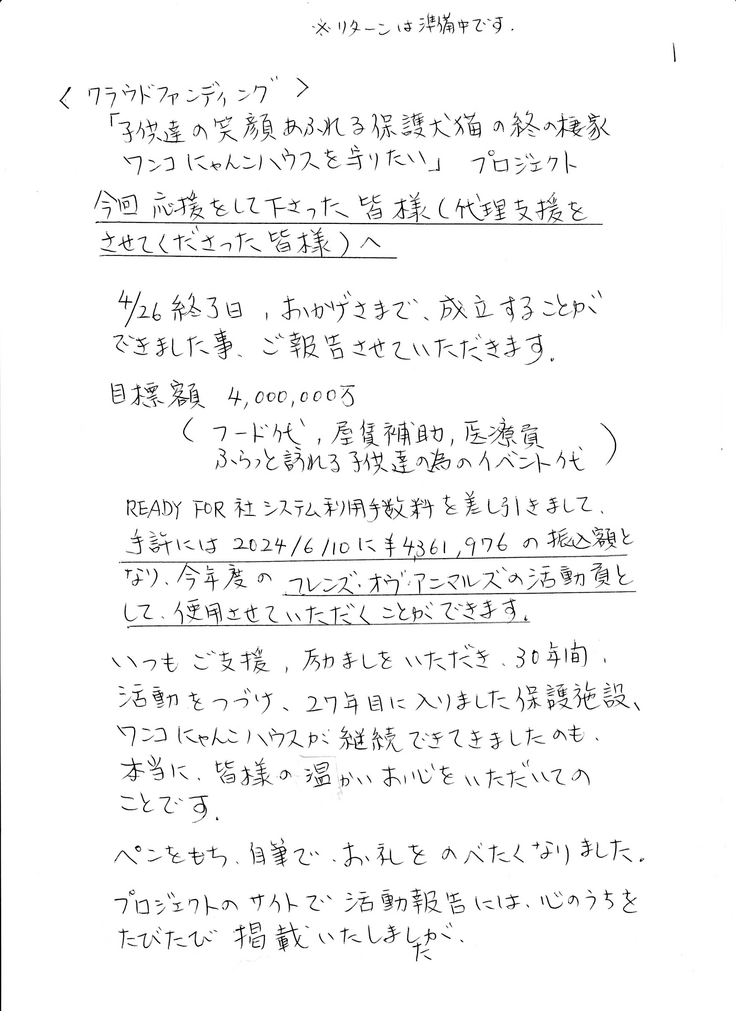 ※リターンは準備中です.
1
〈クラウドファンディング〉
「子供達の笑顔あふれる保護犬猫の終の棲家
ワンコにゃんこハウスを守りたい」プロジェクト
今回応援をして下さった皆様(代理支援を
させてくださった皆様)へ
4/26終了日,おかげさまで、成立することが
できました事、ご報告させていただきます.
目標額 4,000,000万
(フード代,屋賃補助,医療費
ふらっと訪れる子供達の為のイベント代)
READY FOR社システム利用手数料を差し引きまして、
手許には2024/6/10に¥4,361,976の振込額と
なり、今年度のフレンズ・オヴ・アニマルズの活動費と
して、使用させていただくことができます.
いつもご支援,励ましをいただき、30年間,
活動をつづけ、27年目に入りました保護施設、
ワンコにゃんこハウスが継続できてきましたのも、
本当に、皆様の温かいお心をいただいての
ことです.
ペンをもち、自筆で、お礼をのべたくなりました.
プロジェクトのサイトで活動報告には、心のうちを
たびたび掲載いたしましたが、